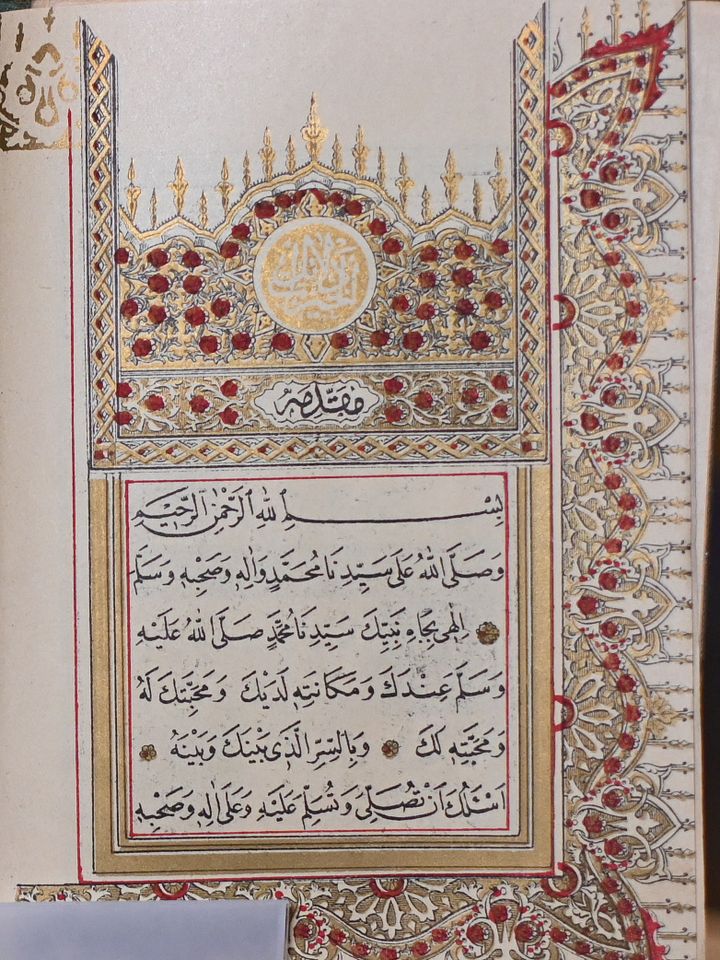 مقدمه
بِسْــمِ اللهِ الرَّحْمٰنِ الرَّحِيمِ
وَصَلَّى اللهُ عَلَى سَيِّدِنَا مُحَمَّدٍ وَاٰلِهِ وَصَحْبِهِ وَسَلَّمَ
اِلٰهِى بِجَاهِ نَبِيِّكَ سَيِّدِنَا مُحَمَّدٍ صَلَّى اللهُ عَلَيْهِ
وَسَلَّمَ عِنْدَكَ وَمَكَانَتِهِ لَدَيْكَ وَمَحَبَّتِكَ لَهُ
وَمَحَبَّتِهِ لَكَ وَبِالسِّرِّ الَّذِى بَيْنَكَ وَبَيْنَهُ
اَسْئَلُكَ اَنْ تُصَلِّىَ وَتُسَلِّمَ عَلَيْهِ وَعَلَى اٰلِهِ وَصَحْبِهِ